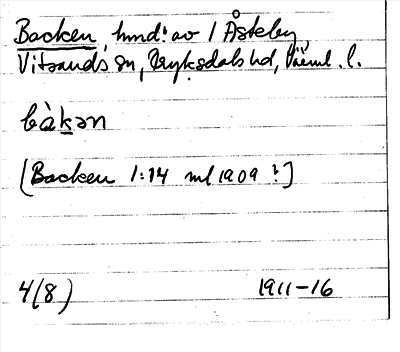 Backen, hmd: av 1 Åsteby,
Vitsands sn, Fryksdals hd, Värml. l.
bàk̲ən
[Backen 1:14 ml 1909 ?]
4(8) 1911-16